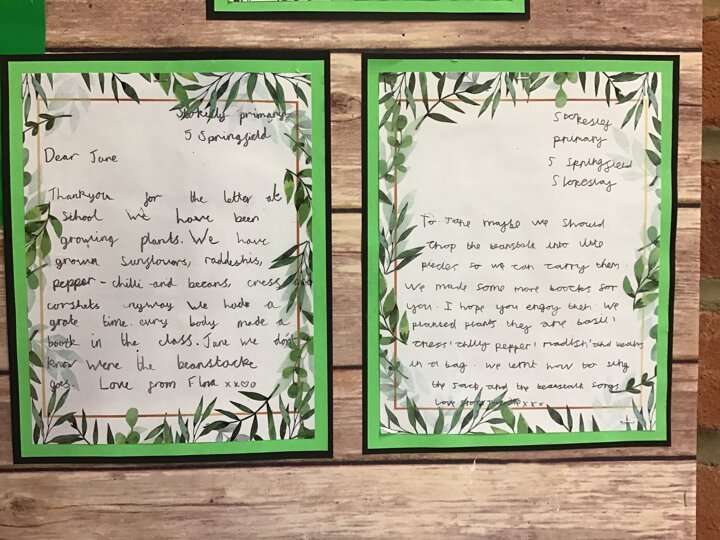 Stokesly primary
5 Springfield
Dear June
Thankyou for the letter at
School We have been
growing plants. We have
grown Sunflowers, raddishis,
pepper - chilli and beeans, cress
nyway We hade a
grate time. eury body made a
boock in the class. June we dont
know were the beanstacke
goes Love from Flora xx♡o
Stokesley
primary
5 Springfield
Stokesley
To June maybe we should
chop the beanstalk into little
pieces so we can carry them.
We made some more boocks for
you. I hope you enjoy them. We
planted plants they are basil,
cress, chilly pepper, radish, and beans
in a bag. we lernt how to sing
the Jack and the beanstalk songs
Love from xxx